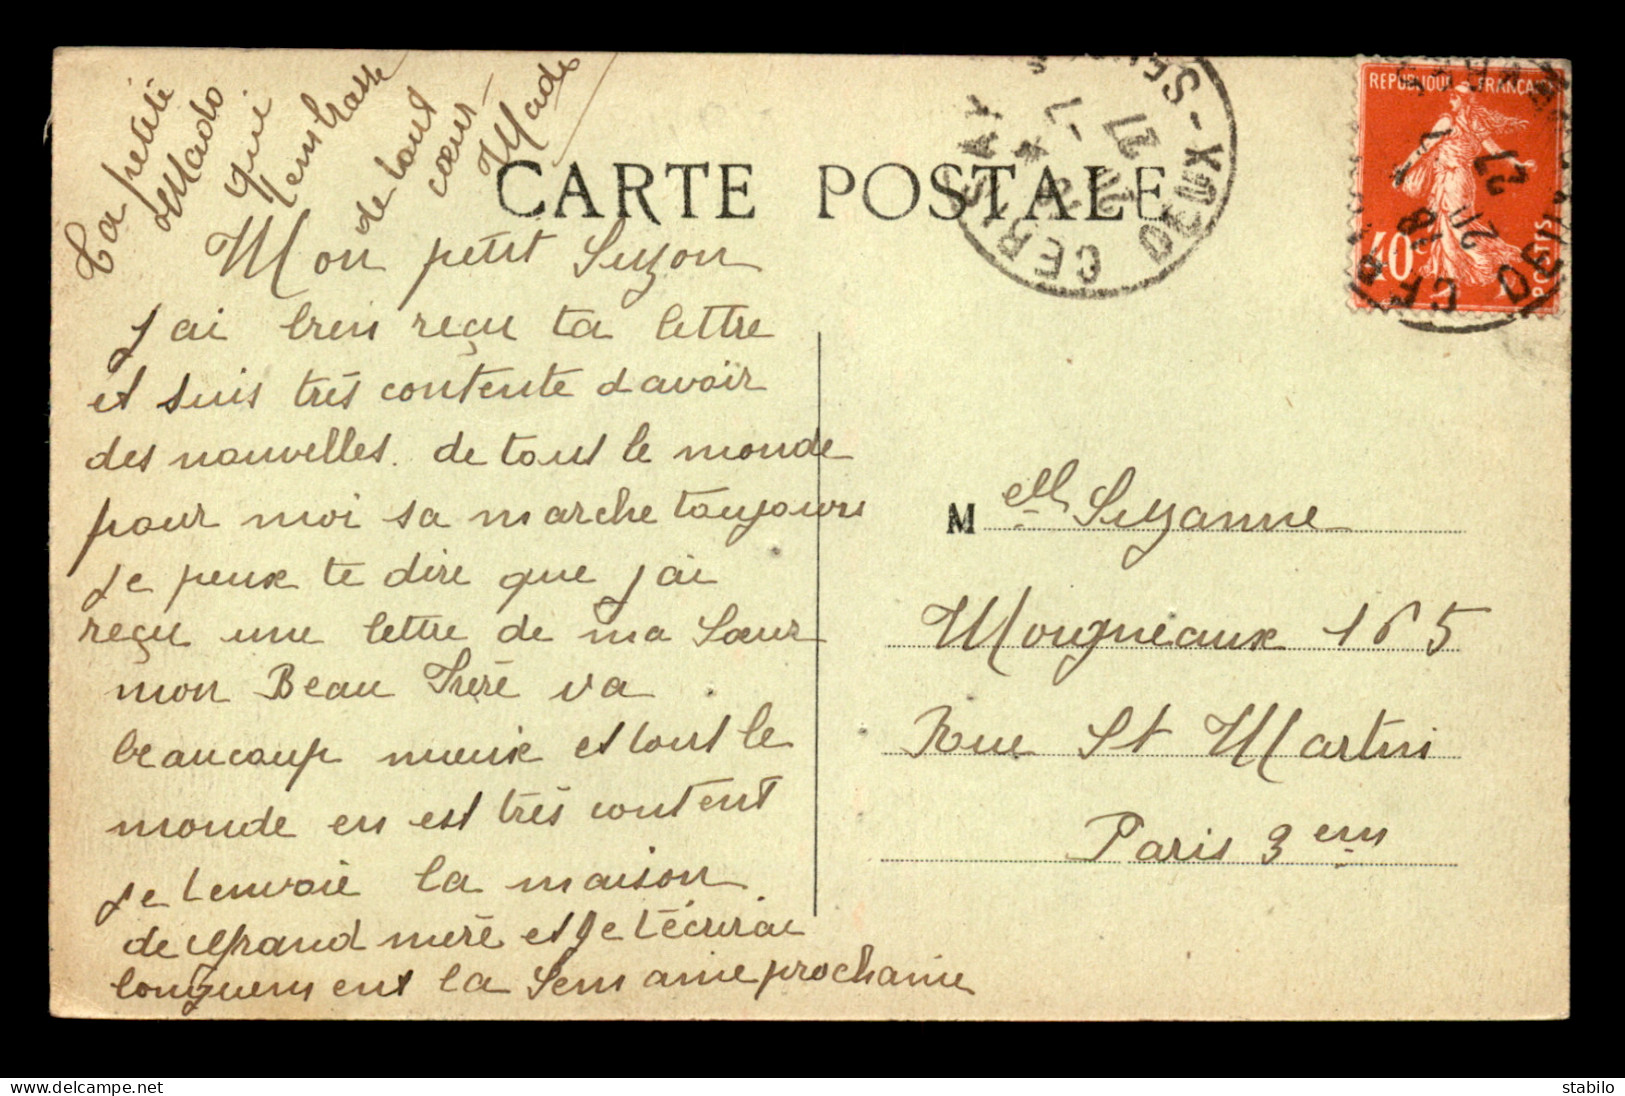 CARTE POSTALE
REPUBLIQUE FRANÇAISE
40
POSTES
CERISAY
DEUX-SEVRES
18
27
Mon petit Suzon
J ai bien reçu ta lettre
et suis très contente davoir
des nouvelles. de tout le monde
pour moi sa marche toujours
Je peux te dire que j ai
reçu une lettre de ma Sœur
mon Beau Frère va
beaucoup mieux et tout le
monde en est très content
Je t envoie la maison
de Grand mère et Je t'écrirai
longuement la Semaine prochaine
Ta petite
Mado
qui
t embrasse
de tout
cœur
Mado
M elle Suzanne
Mougneaux 165
Rue St Martin
Paris 3 em
stabilo